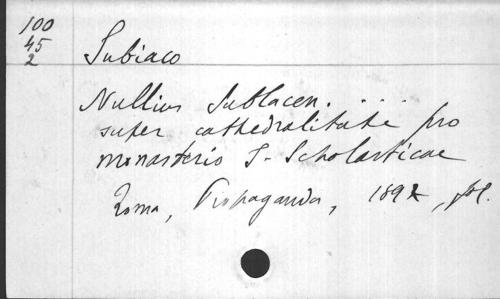 100
45
2
Subiaco
Nullius Sublacen. . . .
super cathedralitate pro
monasterio S. Scholasticae
Roma, Propaganda, 1892, fol.